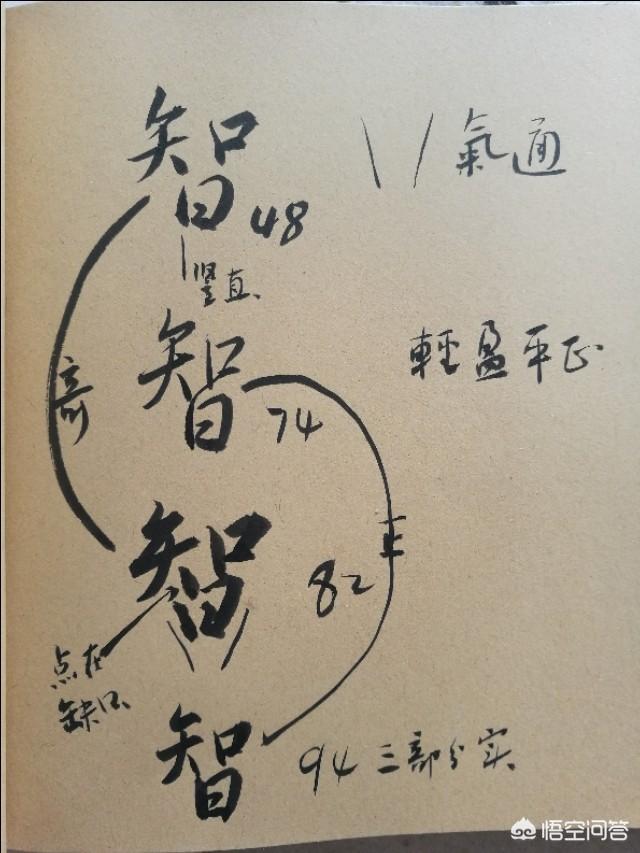 智 氣通
48
竖直
智 輕盈平正
奇
74
智 正
82
点在
缺口
智
94 三部分实
悟空问答